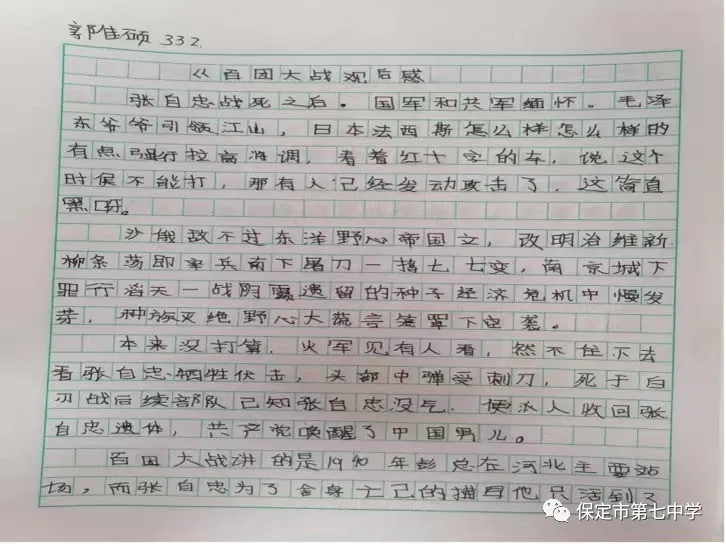 郭佳硕 332.
《百团大战观后感
张自忠战死之后。国军和共军缅怀。毛泽
东爷爷引领江山，日本法西斯怎么样怎么样的
有点强行拉高准调，看着红十字的车，说这个
时候不能打，那有人己经发动攻击了，这简直
黑
沙俄敌不过东洋野心帝国文，改明治维新
柳条荡即率兵南下屠刀一指七七变，南京城下
罪行滔天一战胸露遗留的种子经济危机中慢发
芽，种族灭绝野心大谎言笼罩下空袭。
本来没打算，火军见有人看，然不住下去
看张自忠牺牲伏击，头部中弹受刺刀，死于白
刃战后续部队己知张自忠没气．便派人收回张
自忠遗体，共产党唤醒了中国男儿。
百团大战讲的是1940年彭总在河北主要站
场，而张自忠为了舍身亡己的描写他只活到了
保定市第七中学